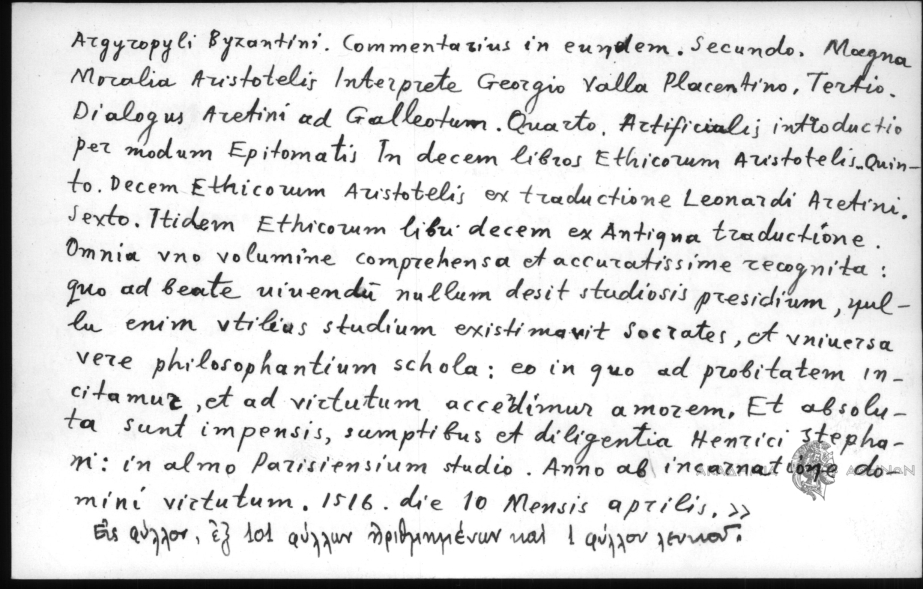 Argyropyli Byzantini. Commentarius in eundem. Secundo. Magna
Moralia Aristotelis Interprete Georgio Valla Placentino, Tertio.
Dialogus Aretini ad Galleotum. Quarto. Artificialis introductio
per modum Epitomatis In decem libros Ethicorum Aristotelis. Quin-
to. Decem Ethicorum Aristotelis ex traductione Leonardi Aretini.
Sexto. Itidem Ethicorum libri decem ex Antiqua traductione.
Omnia vno volumine comprehensa et accuratissime recognita:
quo ad beate uiuendū nullum desit studiosis presidium, nul-
lu enim vtilius studium existimavit Socrates, et vniuersa
vere philosophantium schola: eo in quo ad probitatem in-
citamur, et ad virtutum accedimur amorem. Et absolu-
ta sunt impensis, sumptibus et diligentia Henrici Stepha-
ni: in almo Parisiensium studio. Anno ab incarnatione do-
mini virtutum. 1516. die 10 Mensis aprilis. >>
Εἰς φύλλον, ἐξ 101 φύλλων ἠριθμημένων καὶ 1 φύλλου λευκοῦ.